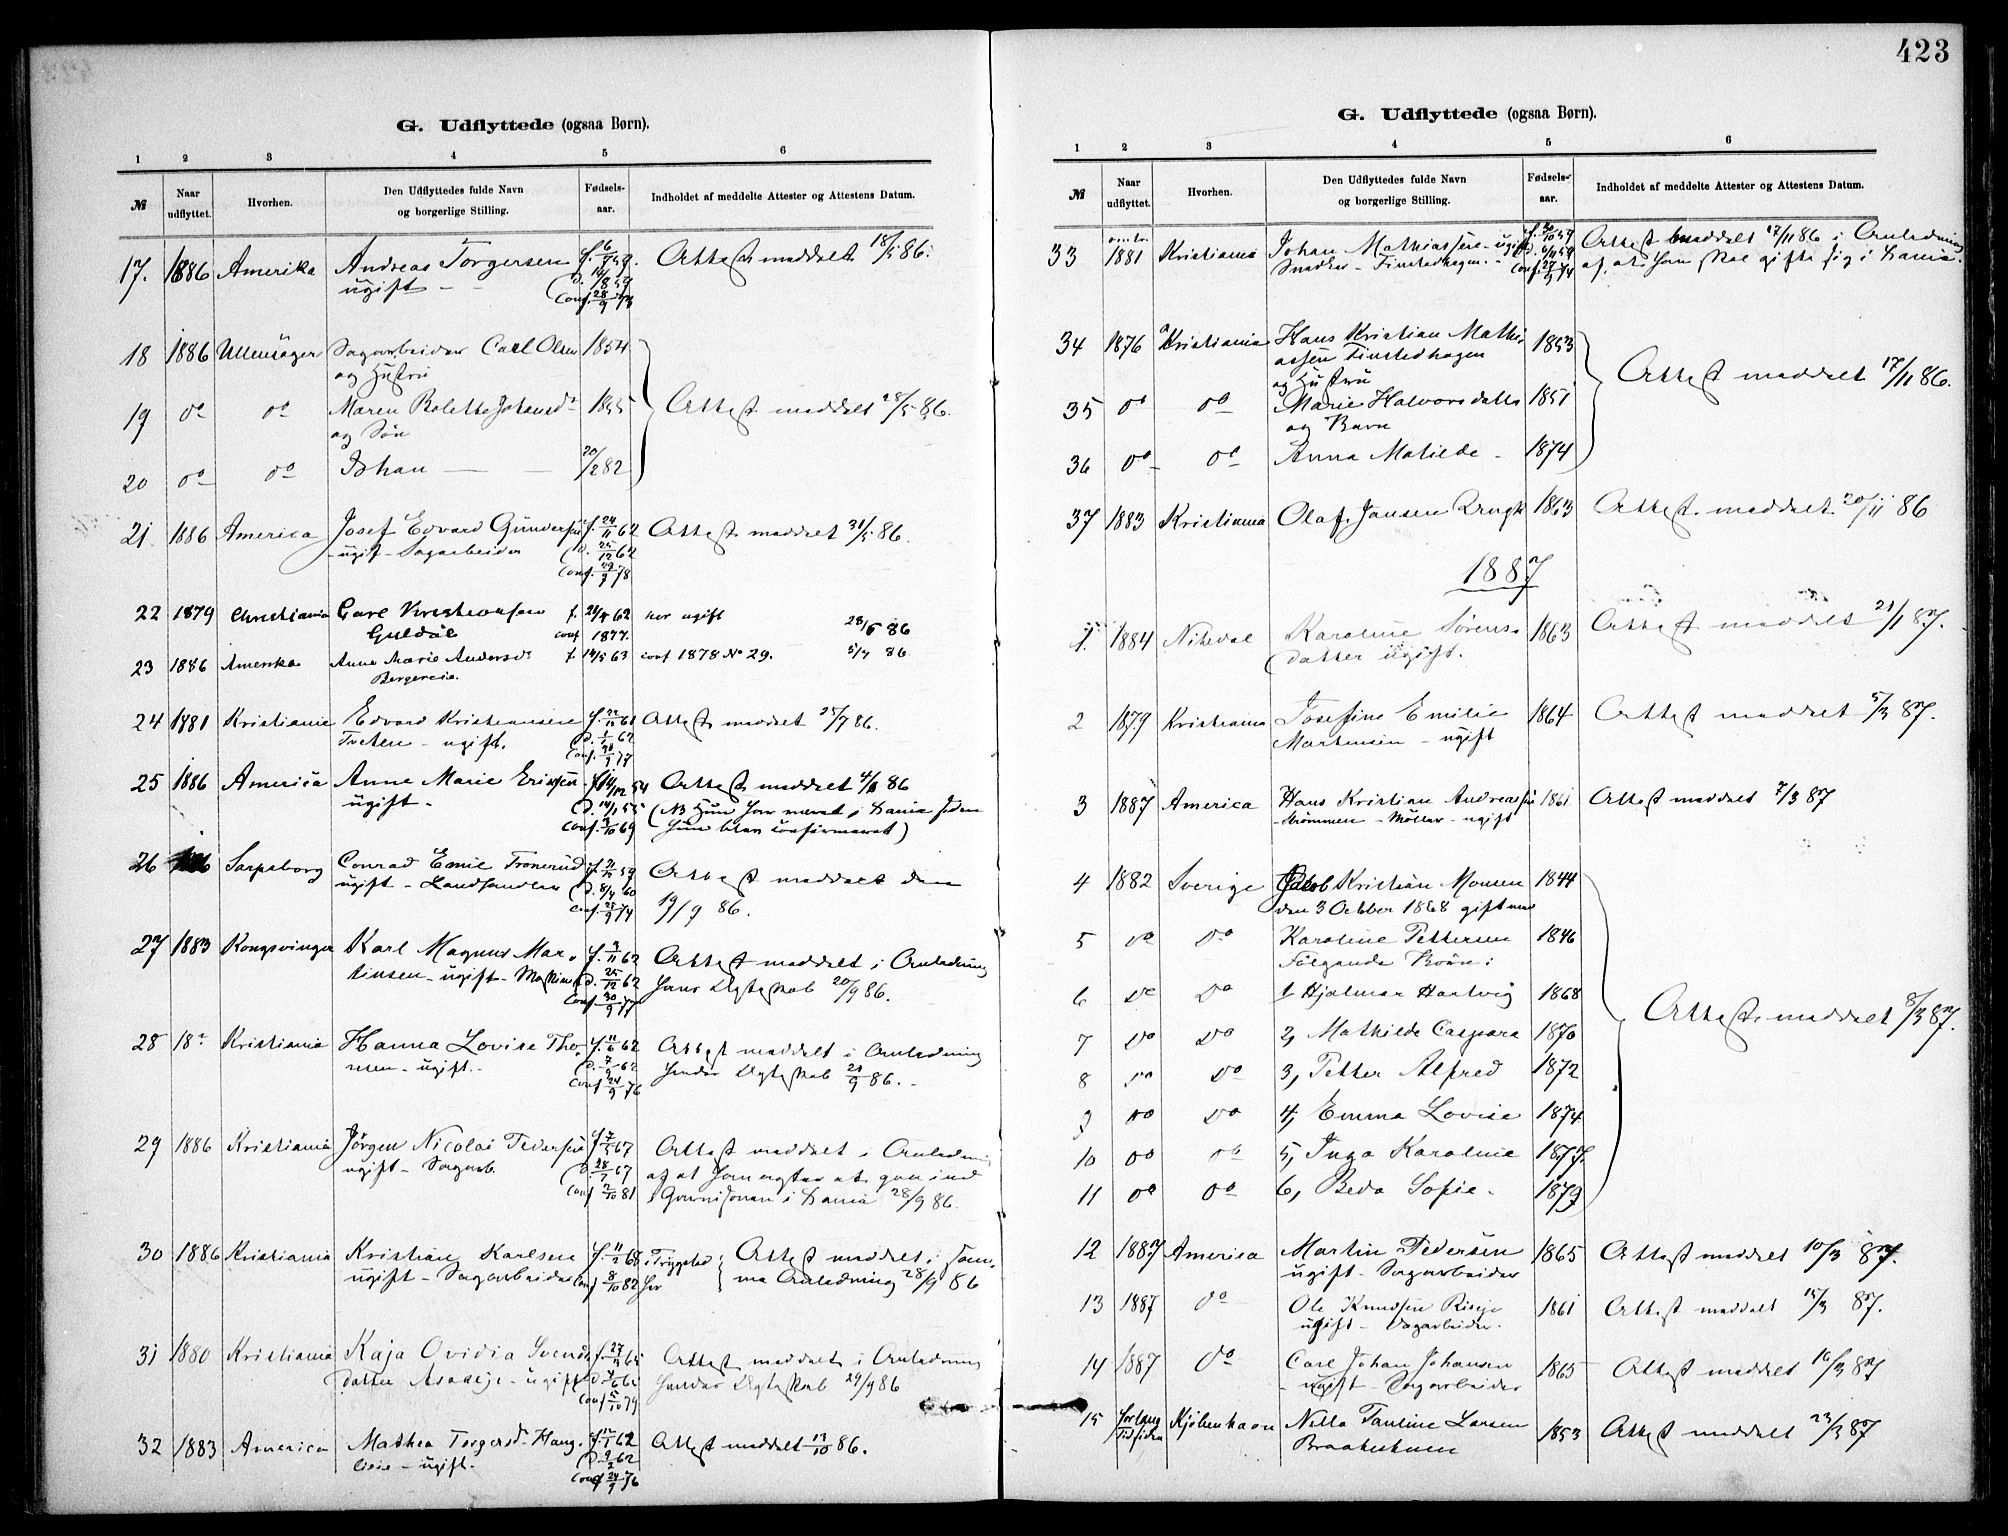 423
G. Udflyttede (ogsaa Børn).
1 2 3 4 5 6
№ Naar udflyttet. Hvorhen. Den Udflyttedes fulde Navn og borgerlige Stilling. Fødsels-aar. Indholdet af meddelte Attester og Attestens Datum.
17. 1886 Amerika Andreas Torgersen Attest meddelt 18/5 86.
ugift
Conf. 28/9 73
18 1886 Ullensager Sagarbeider Carl Olsen 1854
og Hustru
19 do do Maren Bolette Johansdr 1855 Attest meddelt 28/5 86.
og Søn
20 do do Johan 20/2 82
21 1886 America Josef Edvard Gundersen f. 24/11 62 Attest meddelt 31/5 86.
ugift Sagarbeider D. 25/12 62
Conf. 29/9 78
22 1879 Christiania Carl Kristiansen f. 21/5 62 her ugift 28/6 86
Guldál conf 1877.
23 1886 Amerika Anne Marie Andersdr f. 14/5 63 conf 1878 No 29. 5/7 86
24 1881 Kristiania Edvard Kristiansen f. 22/12 61 Attest meddelt 25/7 86.
ugift. D. 1/1 62
Conf. 30/9 77
25 1886 America Anne Marie Eriksen f. 14/12 54 Attest meddelt 4/8 86
ugift. D. 14/1 55 (NB Hun har været i Xania siden
Conf. 3/10 69 hun blev confirmeret)
26 Sarpsborg Conrad Emil Tronerud Attest meddelt den
ugift - Landhandler D. 8/4 60 19/9 86.
Conf. 25/9 74
27 1883 Kongsvinger Karl Magnus Mar- f. 3/11 62 Attest meddelt i Anledning
tinsen - ugift - D. 25/12 62 hans Ægteskab 20/9 86.
Conf. 30/9 77
28 Kristiania Hanna Lovise Tho- f. 11/6 62 Attest meddelt i Anledning
resen - ugift. hendes Ægteskab 21/9 86.
Conf 24/9 76
29 1886 Kristiania Jörgen Nicolai Pedersen Attest meddelt i Anledning
ugift - Sagarb. af at han agter at gaa ind
Conf 2/10 81 i Garnisonen i Xania 28/9 86.
30 1886 Kristiania Kristian Karlsen f. 11/2 68 i Trygstad Attest meddelt i sam-
ugift - Sagarbeider Conf 8/10 82 her me Anledning 28/9 86
31 1880 Kristiania Kaja Ovidia Svends- Attest meddelt i Anledning
datter - ugift hendes Ægteskab 29/9 86
Conf 5/10 79
32 1883 America Mathea Torgersdr Haug- f. 12/1 62 Attest meddelt 13/10 86.
ugift. D. 9/2 62
Conf 24/9 76
G. Udflyttede (ogsaa Børn).
1 2 3 4 5 6
№ Naar udflyttet. Hvorhen. Den Udflyttedes fulde Navn og borgerlige Stilling. Fødsels-aar. Indholdet af meddelte Attester og Attestens Datum.
omtr.
33 1881 Kristiania Johan Mathiassen - ugift Attest meddelt 17/11 86 i Anledning
Snedker - Finstadhagen. af at han skal gifte sig i Xania.
34 1876 Kristiania Hans Kristian Mathi- 1853
assen Finstadhagen
og Hustru Attest meddelt 17/11 86.
35 do do Marie Halvorsdatter 1851
og Barn
36 do do Anna Matilde - 1874
37 1883 Kristiania Olaf Jansen 1863 Attest meddelt 20/11 86
1887
1. 1884 Nitedal Karoline Sørens- 1863 Attest meddelt 21/1 87.
datter ugift.
2 1879 Kristiania Josefine Emilie 1864 Attest meddelt 5/3 87.
Martinsen - ugift
3 1887 America Hans Kristian Andreassen 1861 Attest meddelt 7/3 87
Strömmen - Möller - ugift
4 1882 Sverige Jakob Kristian Monsen 1844
den 3 October 1868 gift med
5 do do Karoline Pettersen 1846
Følgende Börn:
6 do do 1, Hjalmar Hartvig 1868 Attest meddelt 8/3 87.
7 do do 2, Mathilde Caspara 1870
8 do do 3, Petter Alfred 1872
9 do do 4, Emma Lovise 1874
10 do do 5, Inga Karoline 1877.
11 do do 6, Beda Sofie. 1879
12 1887 America Martin Pedersen 1865 Attest meddelt 10/3 87.
ugift - Sagarbeider
13 1887 do Ole Knudsen 1861 Attest meddelt 15/3 87.
ugift - Sagarbeider.
14 1887 do Carl Johan Johansen 1865 Attest meddelt 16/3 87
- ugift - Sagarbeider
15 for lang Tid siden Kjøbenhavn Nilla Pauline Larsen 1853 Attest meddelt 23/3 87